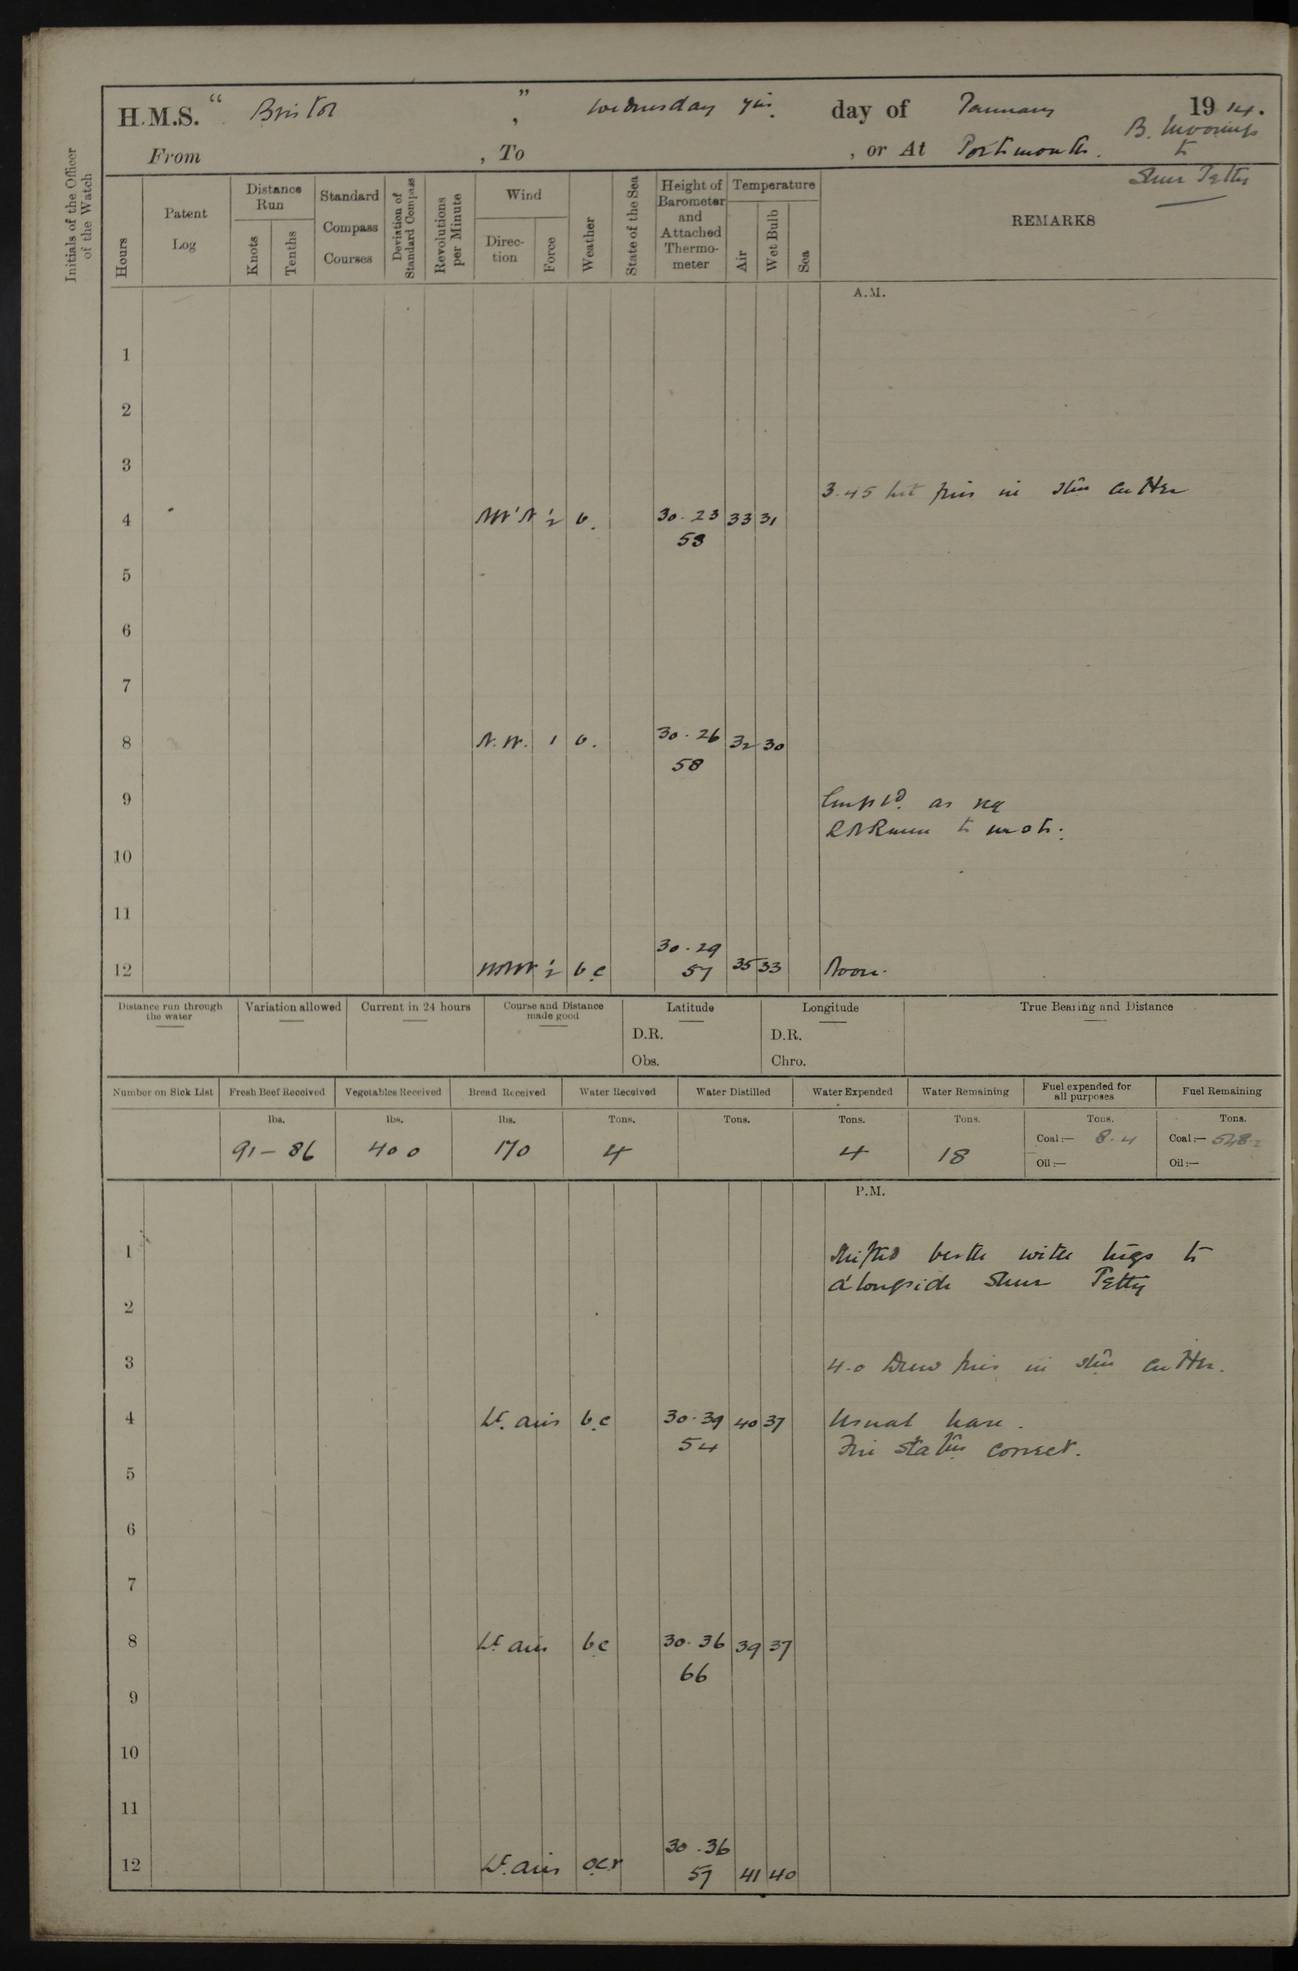 H.M.S. " Bristol ", Wednesday 7th day of January 1914.
From , To , or At Portsmouth. B. Moorings
to
Sheer Jetty
Initials of the Officer of the Watch
Hours
Patent Log
Distance Run
Knots
Tenths
Standard Compass Courses
Deviation of Standard Compass
Revolutions per Minute
Wind
Direction
Force
Weather
State of the Sea
Height of Barometer and Attached Thermometer
Temperature
Air
Wet Bulb
Sea
REMARKS
A.M.
1
2
3
3.45 lit fires in stm cutter
4 NW'N ½ b. 30.23 33 31
58
5
6
7
8 N.W. 1 b. 30.26 32 30
58
9 Empld. as req
10
11
30.29
12 WNW ½ bc 57 35 33 Noon.
Distance run through the water
Variation allowed
Current in 24 hours
Course and Distance made good
Latitude
D.R.
Obs.
Longitude
D.R.
Chro.
True Bearing and Distance
Number on Sick List
Fresh Beef Received
Vegetables Received
Bread Received
Water Received
Water Distilled
Water Expended
Water Remaining
Fuel expended for all purposes
Fuel Remaining
lbs. lbs. lbs. Tons. Tons. Tons. Tons. Tons. Tons.
91 - 86 400 170 4 4 18
Coal:— 8.4 Coal:—
Oil:— Oil:—
P.M.
1 Shifted berth with tugs to
alongside Sheer Jetty
2
3 4.0 Drew fires in stm cutter.
4 Lt. airs bc 30.39 40 37 Usual leave.
54 Fire statn correct.
5
6
7
8 Lt. airs bc 30.36 39 37
66
9
10
11
30.36
12 Lt. airs ocr 57 41 40